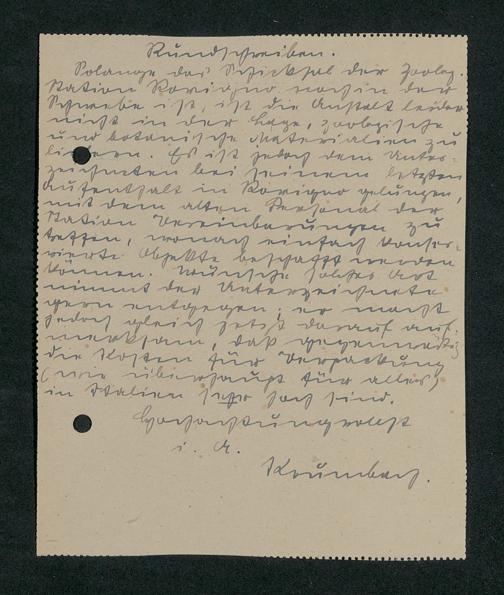 Rundschreiben.
Solange das Schicksal der Zoolog.
Station Rovigno noch in der
Schwebe ist, ist die Anstalt leider
nicht in der Lage, zoologische
und botanische Materialien zu
liefern. Es ist jedoch dem Unter-
zeichneten bei seinem letzten
Aufenthalt in Rovigno gelungen,
mit dem alten Personal der
Station Vereinbarungen zu
treffen, wonach einfach konser-
vierte Objekte beschafft werden
können. Wünsche solcher Art
nimmt der Unterzeichnete
gern entgegen; er macht
jedoch gleich jetzt darauf auf-
merksam, daß gegenwärtig
die Kosten für Verpackung
(wie überhaupt für alles)
in Italien sehr hoch sind.
Hochachtungsvollst
i. A.
Krumbach.